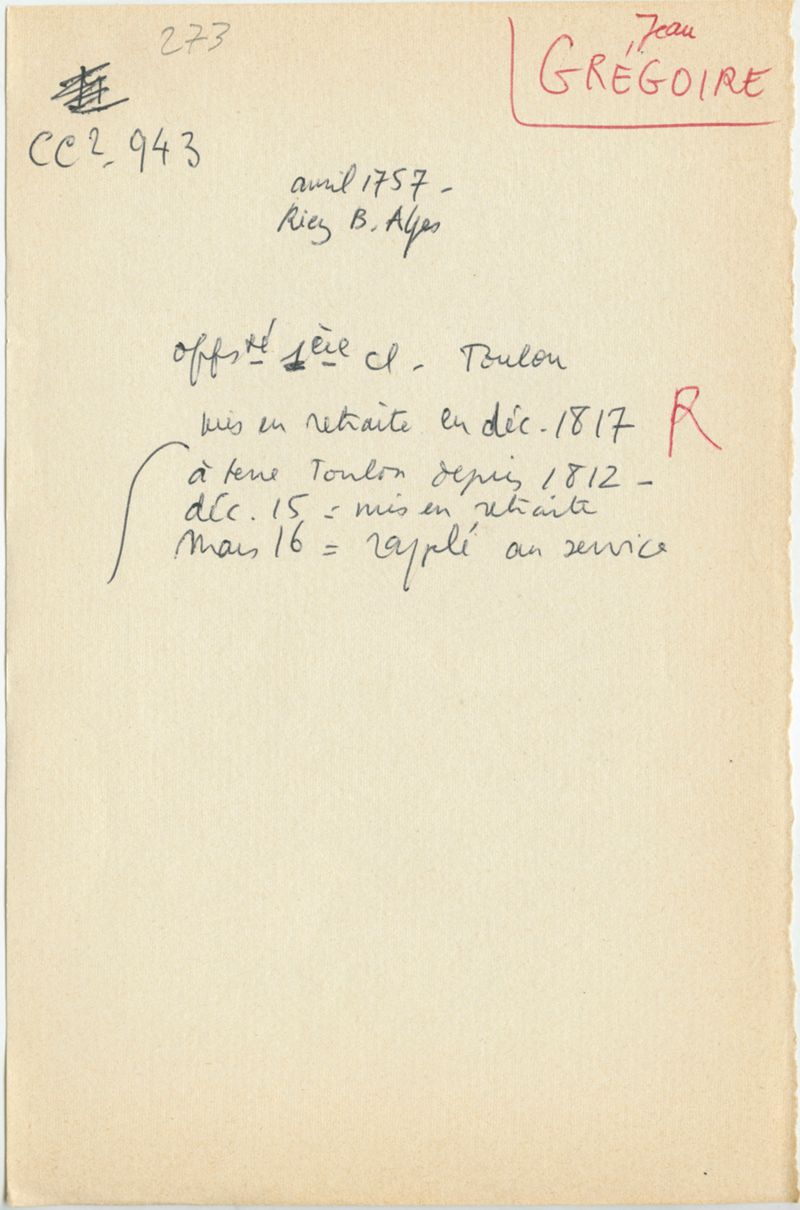 273
Jean
GRÉGOIRE
CC2. 943
avril 1757 -
Riez B. Alpes
offsté 1ère cl - Toulon
mis en retraite en déc. 1817 R
à terre Toulon depuis 1812 -
déc. 15 = mis en retraite
Mars 16 = rappelé au service